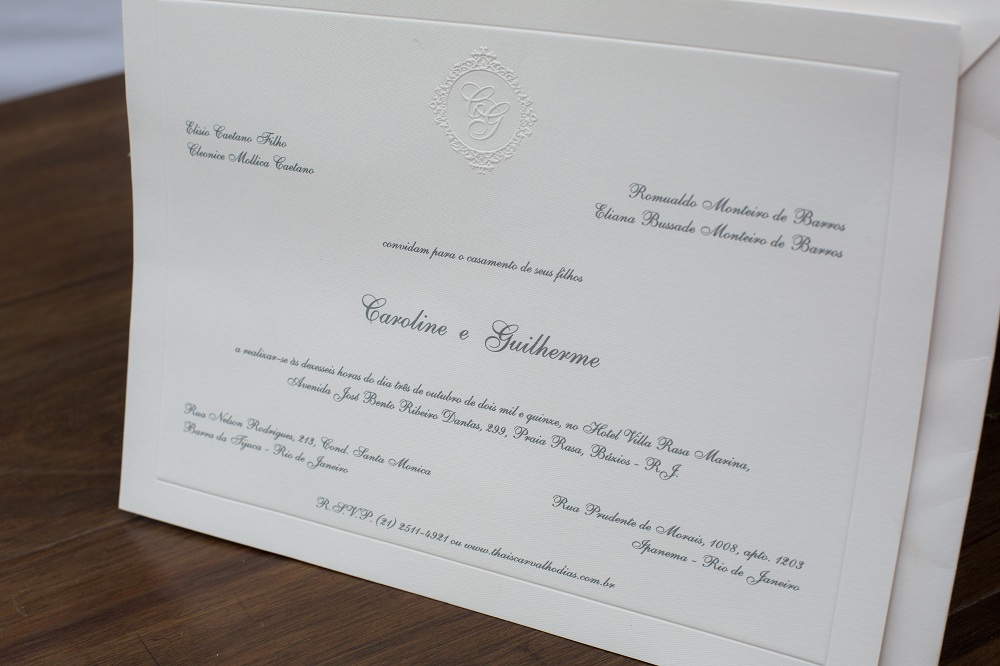 CG
Elisio Caetano Filho
Cleonice Mollica Caetano
Romualdo Monteiro de Barros
Eliana Bussade Monteiro de Barros
convidam para o casamento de seus filhos
Caroline e Guilherme
a realizar-se às dezesseis horas do dia três de outubro de dois mil e quinze, no Hotel Villa Rasa Marina,
Avenida José Bento Ribeiro Dantas, 299, Praia Rasa, Búzios - R.J.
Rua Nelson Rodrigues, 213, Cond. Santa Monica
Barra da Tijuca - Rio de Janeiro
Rua Prudente de Morais, 1008, apto. 1203
Ipanema - Rio de Janeiro
R.S.V.P. (21) 2511-4921 ou www.thaiscarvalhodias.com.br